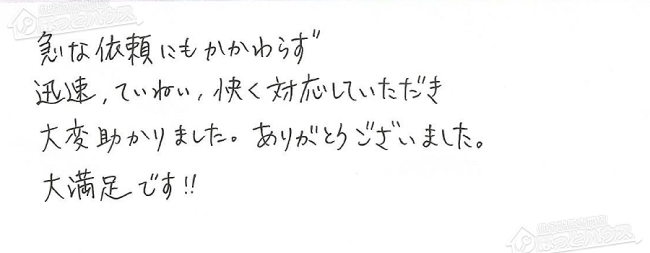 急な依頼にもかかわらず
迅速，ていねい，快く対応していただき
大変助かりました。ありがとうございました。
大満足です!!